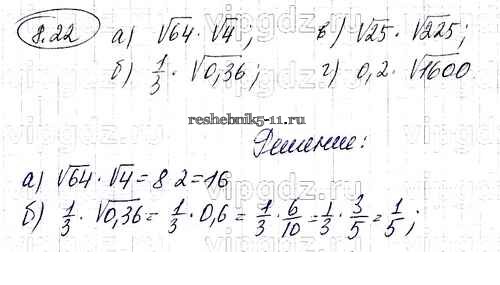 8.22 а) √64 · √4; в) √25 · √225;
б) 1/3 · √0,36; г) 0,2 · √1600
reshebnik5-11.ru
Решение:
а) √64 · √4 = 8 2 = 16
б) 1/3 · √0,36 = 1/3 · 0,6 = 1/3 · 6/10 = 1/3 · 3/5 = 1/5;